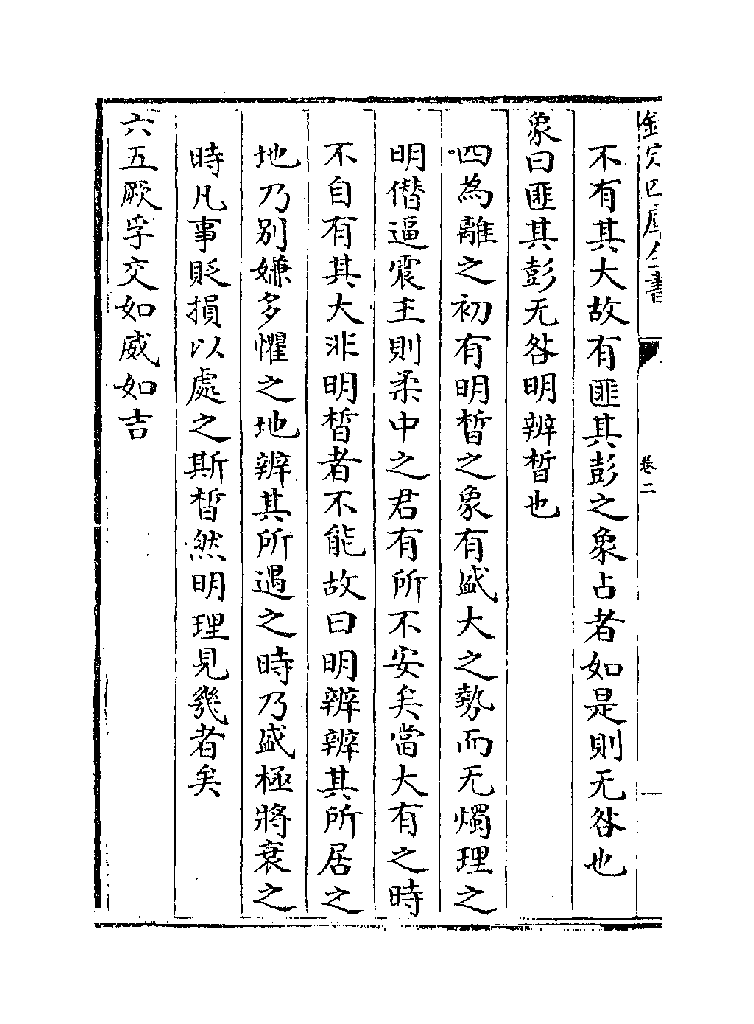 欽定四庫全書
卷二
不有其大故有匪其彭之象占者如是則无咎也
象曰匪其彭无咎明辨晳也
四為離之初有明晳之象有盛大之勢而无燭理之
明僭逼震主則柔中之君有所不安矣當大有之時
不自有其大非明晳者不能故曰明辨辨其所居之
地乃别嫌多懼之地辨其所遇之時乃盛極將衰之
時凡事貶損以處之斯晳然明理見幾者矣
六五厥孚交如威如吉